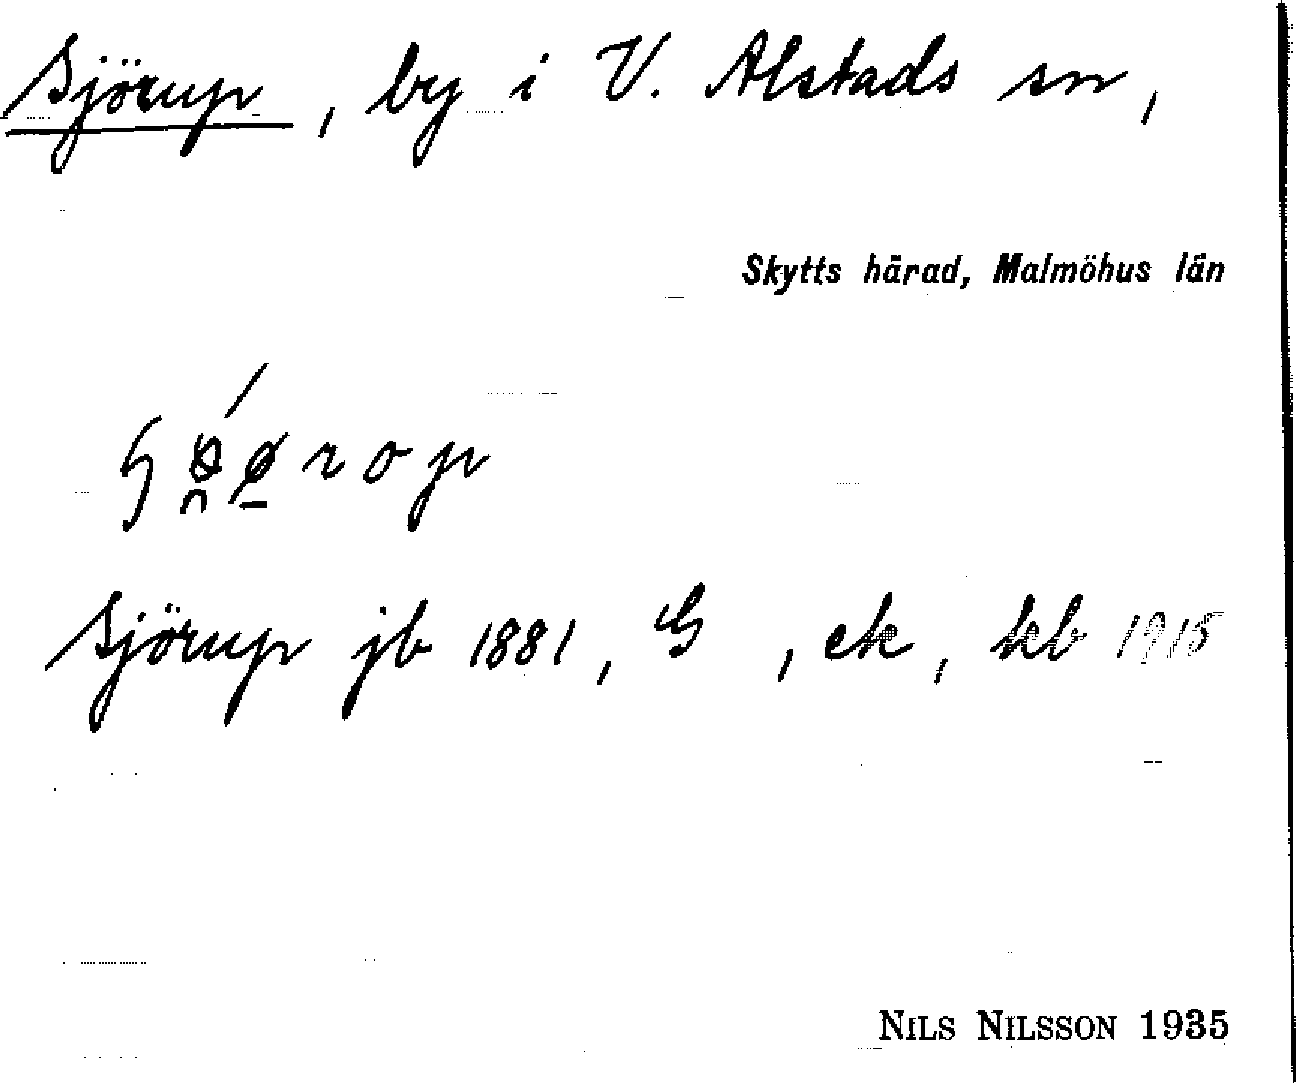 Sjörup, by i V. Alstads sn,
Skytts härad, Malmöhus län
Sjörup jb 1881, G , ek, kb 1915
NILS NILSSON 1935